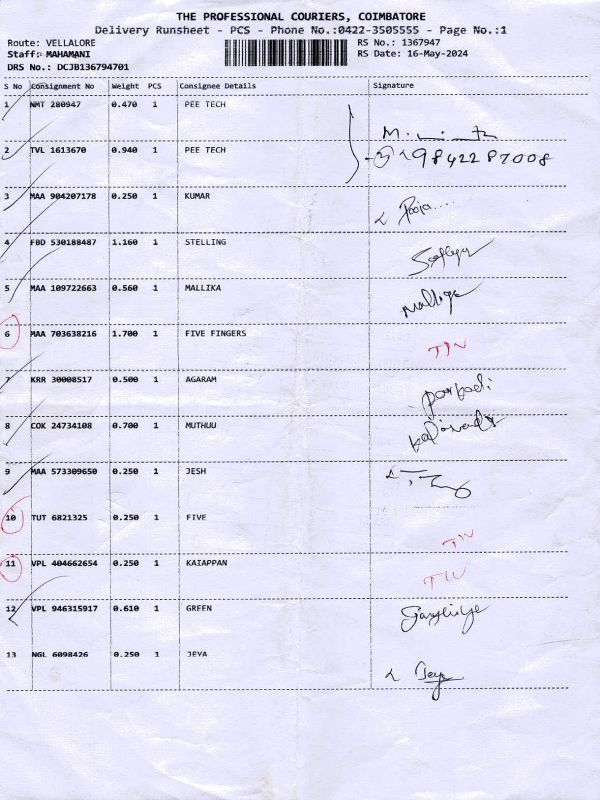 THE PROFESSIONAL COURIERS, COIMBATORE
Delivery Runsheet - PCS - Phone No.:0422-3505555 - Page No.:1
Route: VELLALORE RS No.: 1367947
Staff: MAHAMANI RS Date: 16-May-2024
DRS No.: DCJB136794701
S No Consignment No Weight PCS Consignee Details Signature
1 NMT 280947 0.470 1 PEE TECH
2 TVL 1613670 0.940 1 PEE TECH 9842287008
3 MAA 904207178 0.250 1 KUMAR Pooja....
4 FBD 530188487 1.160 1 STELLING
5 MAA 109722663 0.560 1 MALLIKA Malliga
6 MAA 703638216 1.700 1 FIVE FINGERS
7 KRR 30008517 0.500 1 AGARAM
8 COK 24734108 0.700 1 MUTHUU
9 MAA 573309650 0.250 1 JESH
10 TUT 6821325 0.250 1 FIVE
11 VPL 404662654 0.250 1 KAIAPPAN
12 VPL 946315917 0.610 1 GREEN
13 NGL 6098426 0.250 1 JEYA Jeya